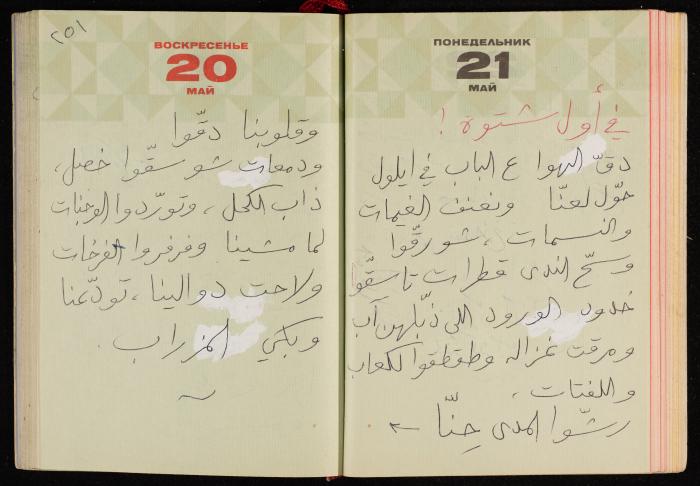 ПОНЕДЕЛЬНИК
21
МАЙ
في أول شتوة !
دقّ الهوا ع الباب في ايلول
حوّل لعنّا ونغنف الغيمات
والنسمات، شو رقّوا
وسحّ الندى قطرات تا سقّوا
خدود الورود اللي ذبّلهن آب
ومرقت غزاله وطقطقوا الكعاب
واللفتات،
رشّوا المدى حِنّا ←
٢٥١
ВОСКРЕСЕНЬЕ
20
МАЙ
وقلوبنا دقّوا
ودمعات شو سقّوا خصل،
ذاب الكحل، وتورّدوا الوجنات
لما مشينا وفرفروا الفرخات
ولاحت دوالينا، تودّعنا
وبكي المزراب.